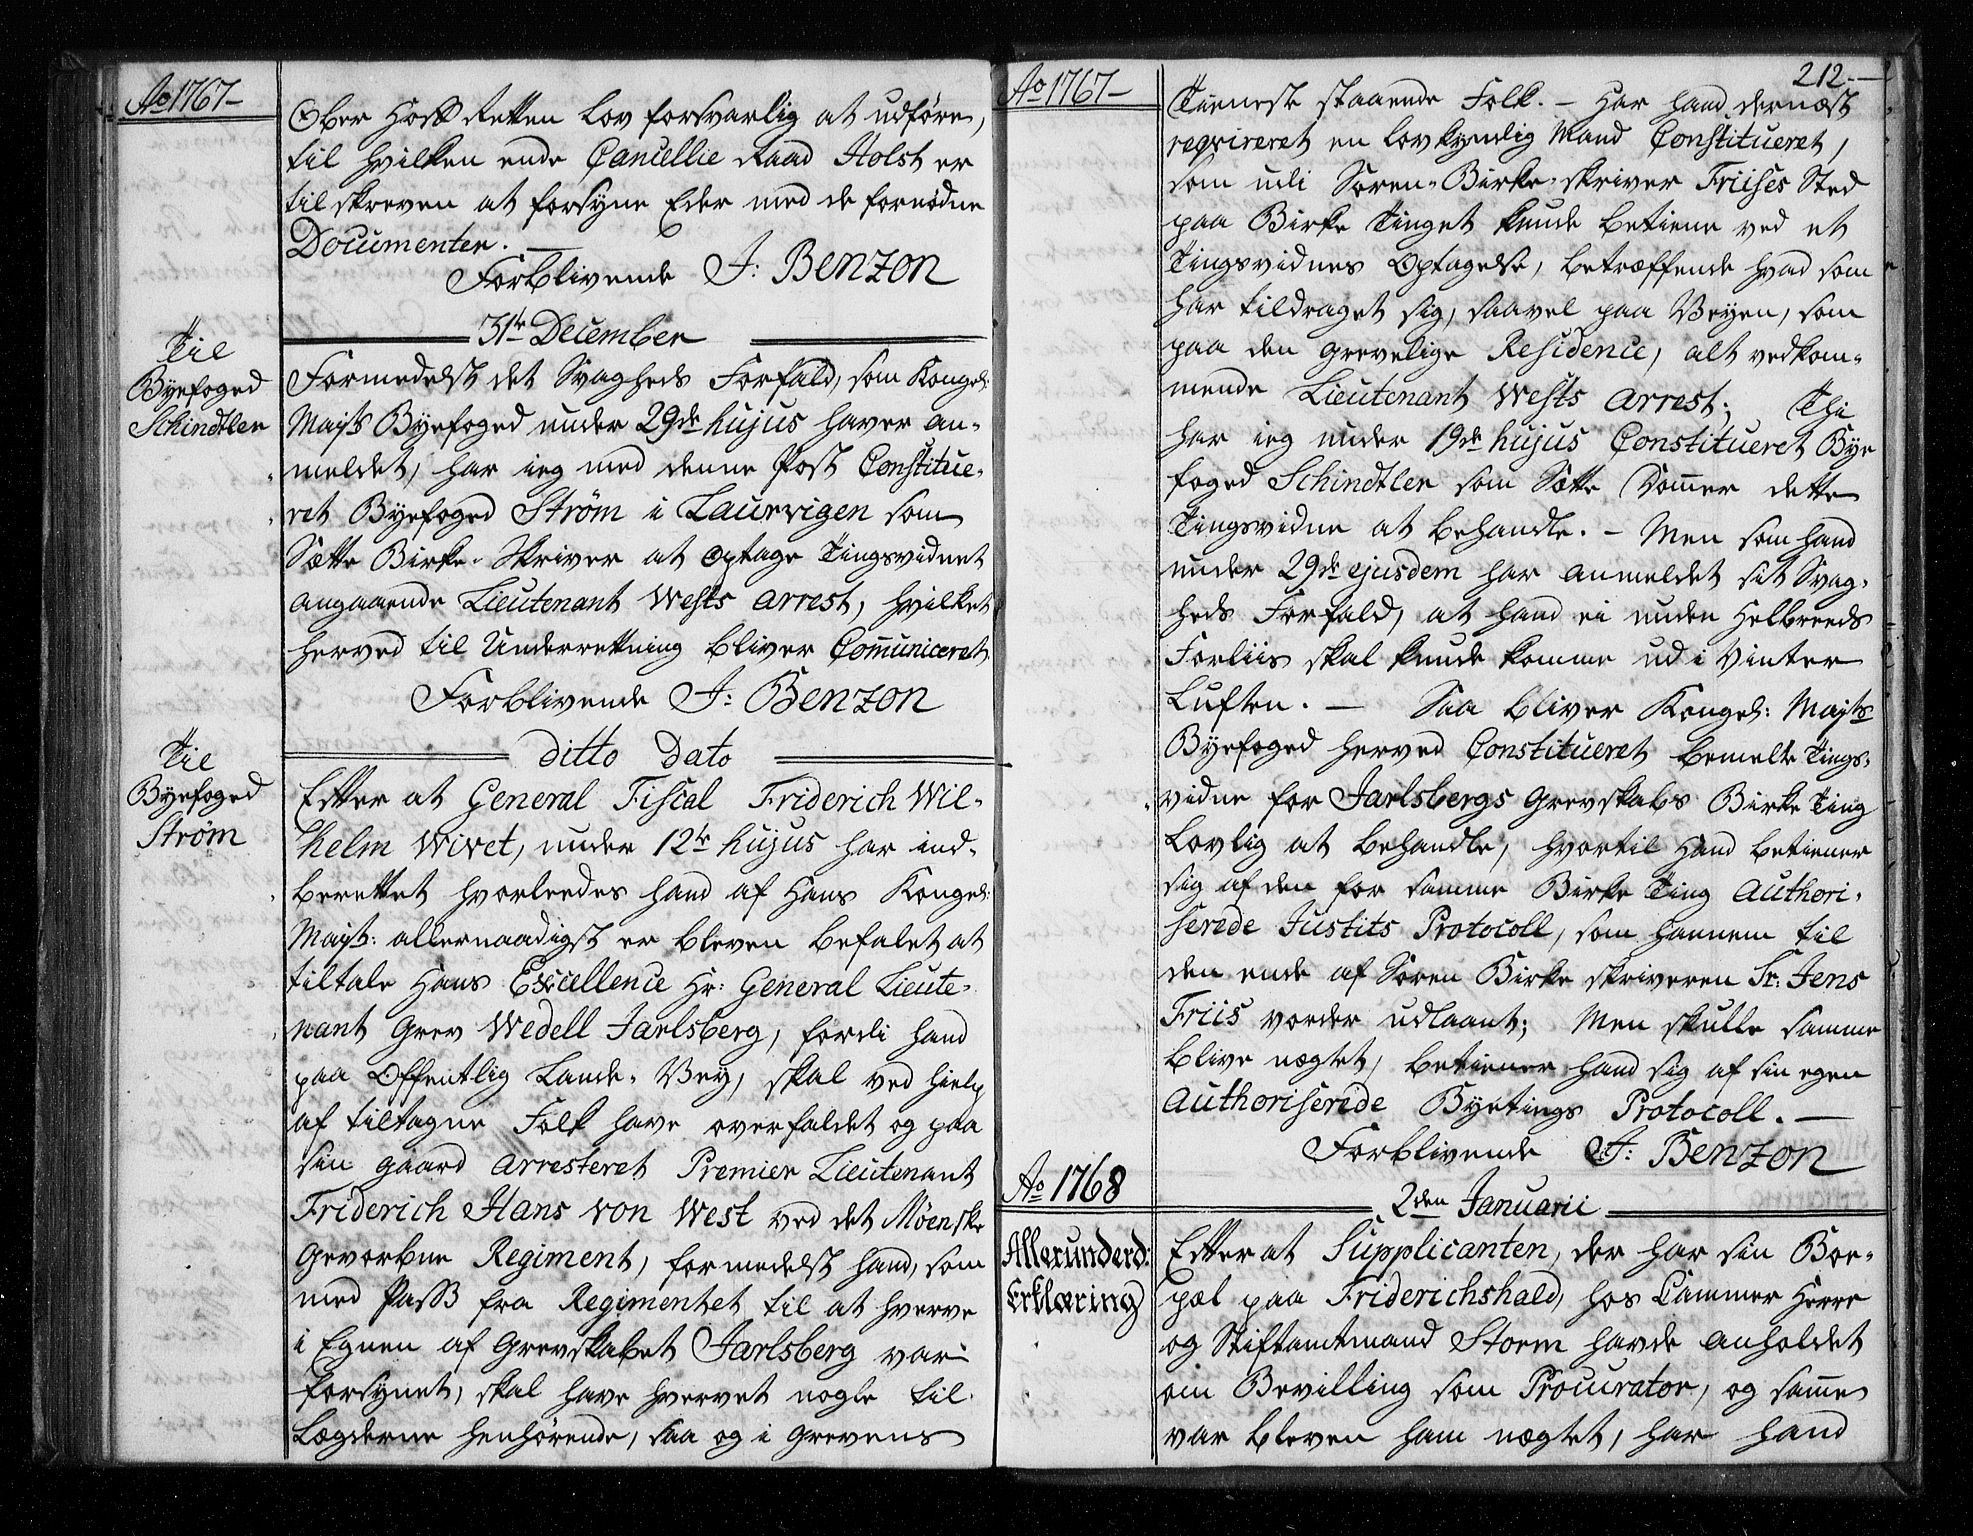 Ao 1767
Ober Hoff Retten lov forsvarlig at udføre,
til hvilken ende Cancellie Raad Holst er
tilskreven at forsyne Eder med de fornødne
Documenter. —
Forblivende J: Benzon
31te December
Til
Byefoged
Schindtler
Formedelst det Svagheds Forfald, som Kongel:
Mayts Byefoged under 29de hujus haver an-
meldet, har ieg med denne Post Constitue-
ret Byefoged Strøm i Laurvigen som
Sætte Birke-Skriver at optage Tingsvidnet
angaaende Lieutenant Wests Arrest, hvilket
herved til Underretning bliver Communiceret.
Forblivende J: Benzon
ditto dato
Til
Byefoged
Strøm
Efter at General Fiscal Friderich Wil-
helm Wivet, under 12te hujus har ind-
berettet hvorledes hand af Hans Kongel:
Mayts: allernaadigst er bleven befalet at
tiltale Hans Excellence Hr: General Lieute-
nant Grev Wedell Jarlsberg, fordi hand
paa Offentlig Lande-Vey, skal ved hielp
af tiltagne Folk have overfaldet og paa
sin gaard Arresteret Premier Lieutenant
Friderich Hans von West ved det Møenske
Gevorbne Regiment, formedelst hand, som
med Pass fra Regimentet til at hverve
i Egnen af Grevskabet Jarlsberg var
forsynet, skal have hvervet nogle til
Lægderne henhørende, saa og i Grevens
Ao 1767
212.
Tieneste staaende Folk. — Har hand dernæst
reqvireret en lovkyndig Mand Constitueret,
som udi Soren-Birke-skriver Friises Sted
paa Birke Tinget kunde betiene ved et
Tingsvidnes Optagelse, betræffende hvad som
har tildraget sig, saavel paa Veyen, som
paa den grevelige Residence, alt vedkom-
mende Lieutenant Wests Arrest; Thi
har ieg under 19de hujus Constitueret Bye
foged Schindtler som Sætte Dommer dette
Tingsvidne at behandle. — Men som hand
under 29de ejusdem har anmeldet sit Svag-
heds Forfald, at hand ei uden Helbreeds
Forliis skal kunde komme ud i Vinter
Luften. — Saa bliver Kongel: Mayts
Byefoged herved Constitueret bemelte Tings-
vidne for Jarlsbergs Grevskabs Birke Ting
Lovlig at behandle, hvortil Hand betiener
sig af den for samme Birke Ting Authori-
serede Justits Protocoll, som hannem til
den ende af Soren Birke skriveren Sr: Jens
Friis vorder udlaant; Men skulle samme
blive nægtet, betiener hand sig af sin egen
Authoriserede Byetings Protocoll. —
Forblivende J: Benzon
Ao 1768
2den Januarii
Allerunderd:
Erklæring
Efter at Supplicanten, der har sin Boe-
pæl paa Friderichshald, hos Cammer Herre
og Stiftamtmand Storm havde anholdet
om Bevilling som Procurator, og samme
var bleven ham nægtet, har hand